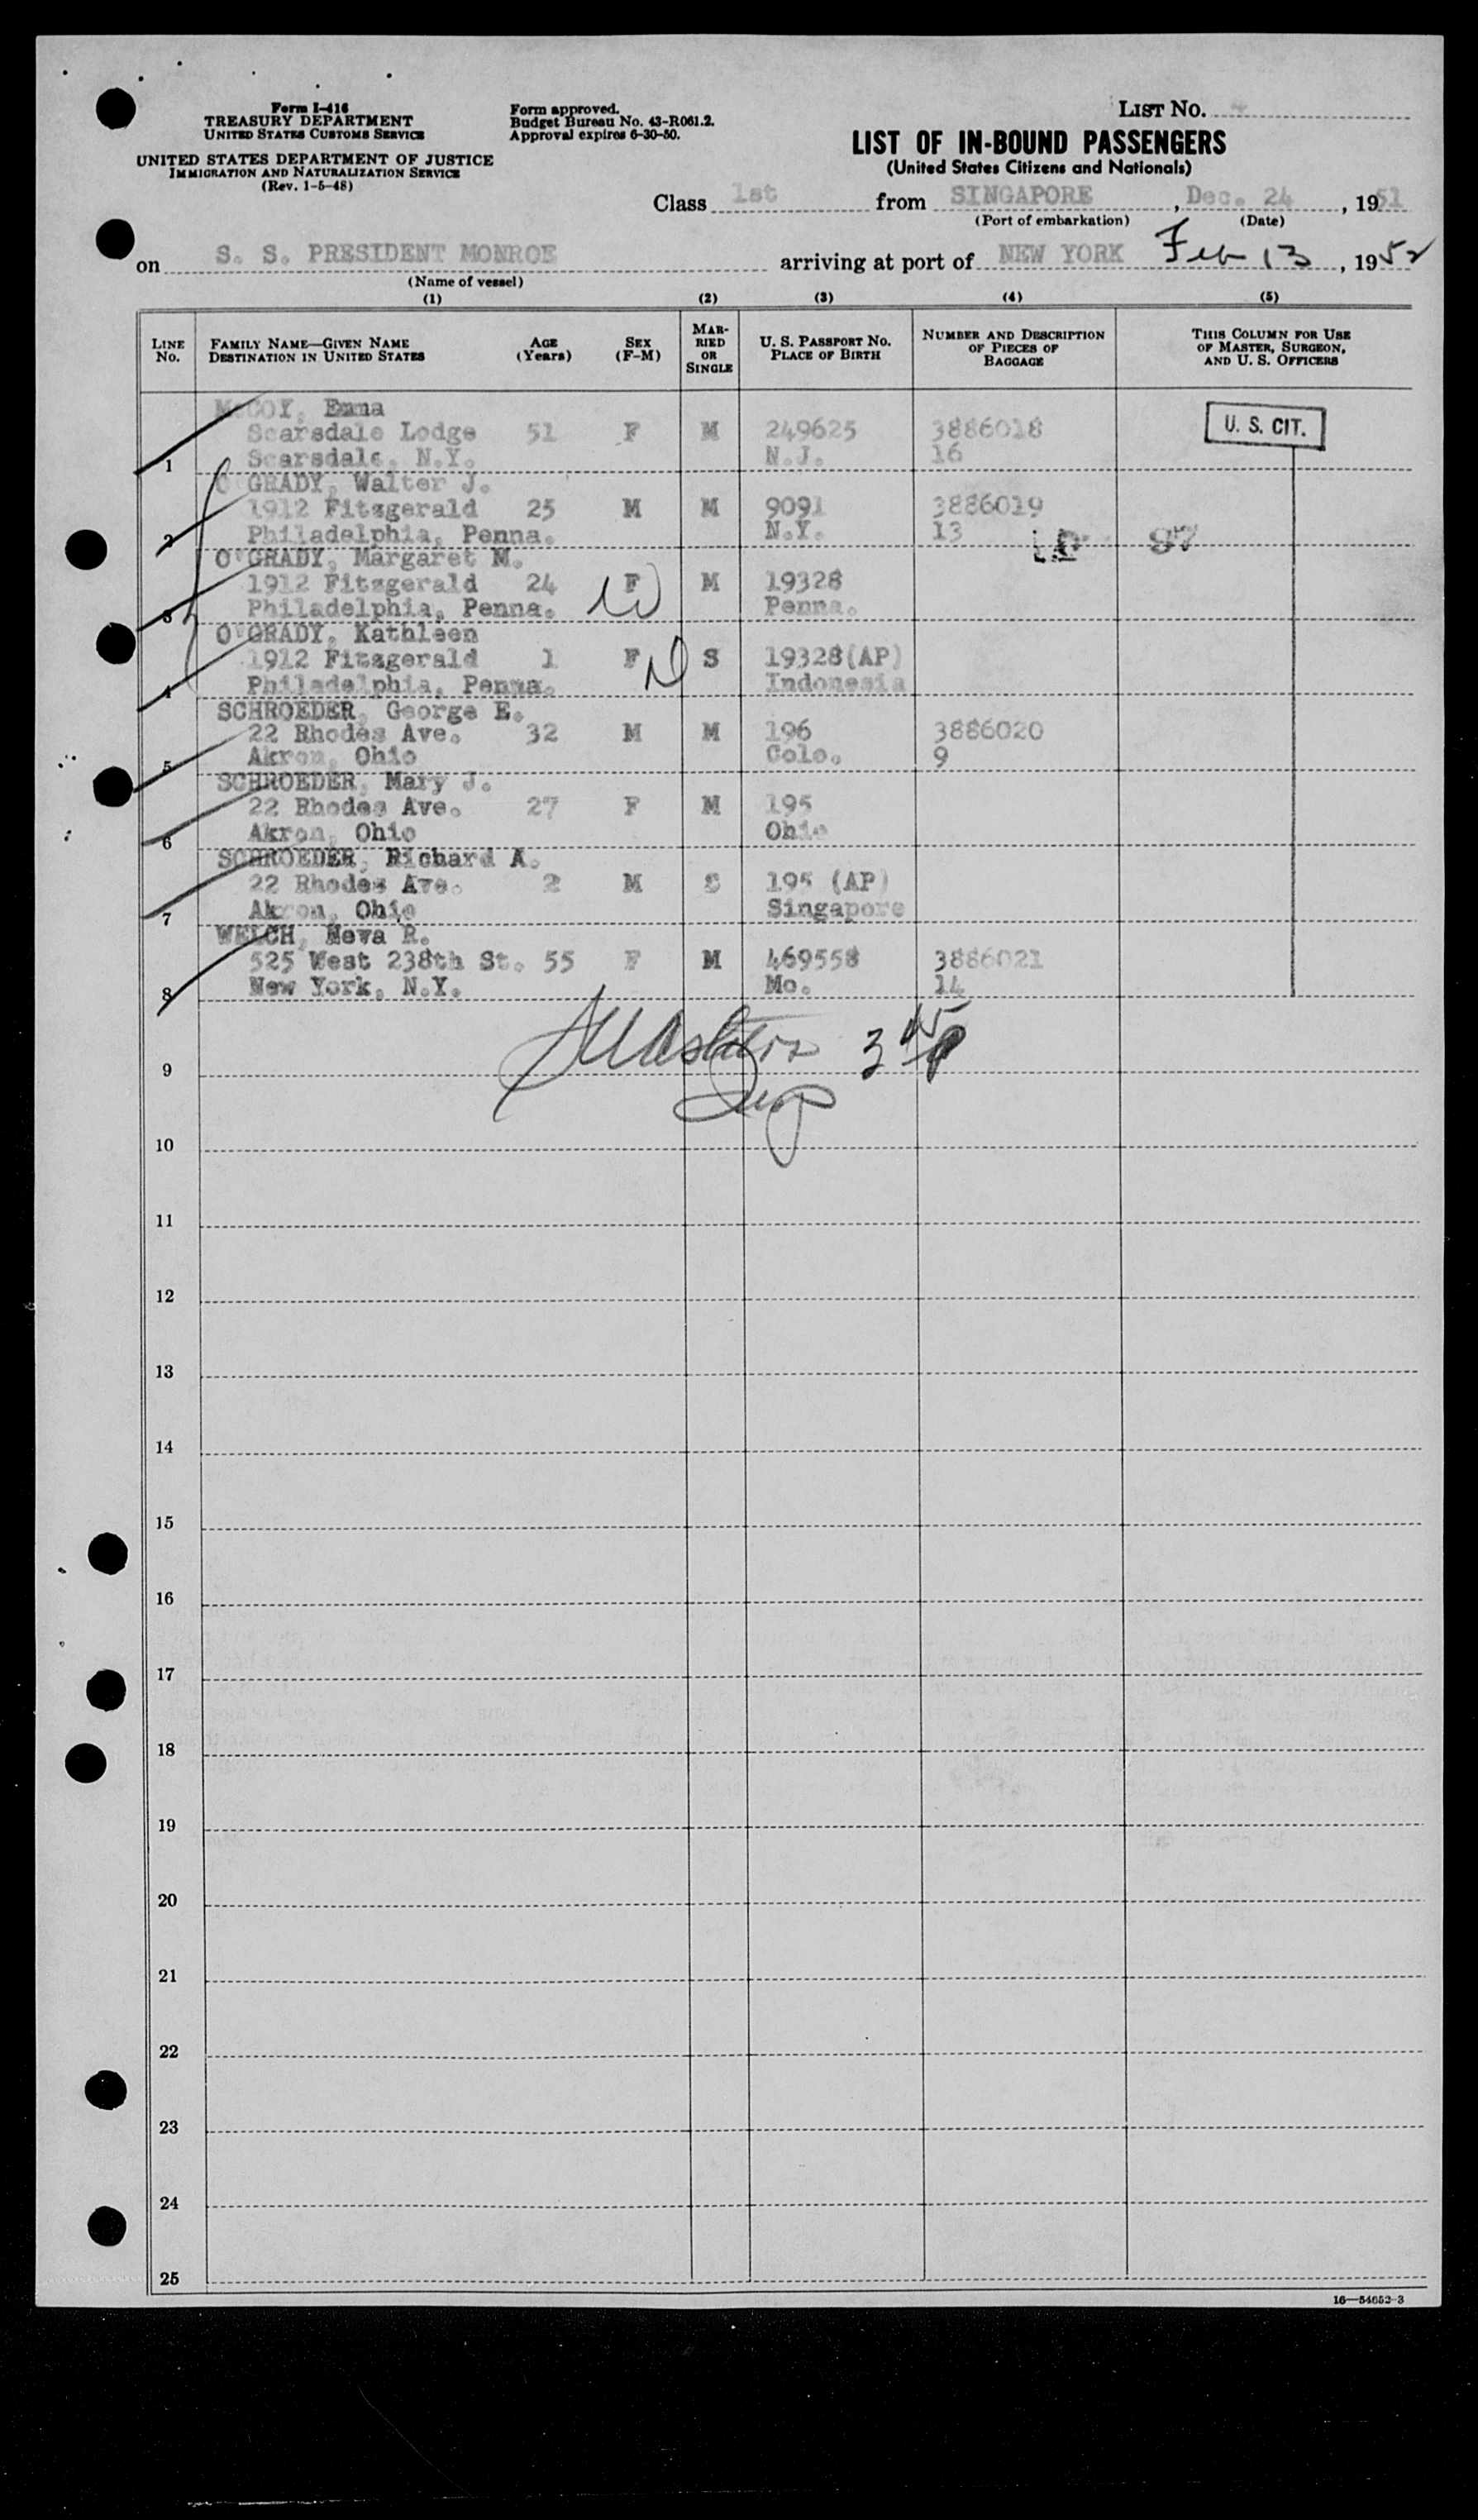 Form I-416
TREASURY DEPARTMENT
UNITED STATES CUSTOMS SERVICE
UNITED STATES DEPARTMENT OF JUSTICE
IMMIGRATION AND NATURALIZATION SERVICE
(Rev. 1-5-48)
Form approved.
Budget Bureau No. 43-R061.2.
Approval expires 6-30-50.
LIST NO.
LIST OF IN-BOUND PASSENGERS
(United States Citizens and Nationals)
Class 1st from SINGAPORE, Dec. 24, 1951
(Port of embarkation) (Date)
on S. S. PRESIDENT MONROE arriving at port of NEW YORK Feb 13, 1952
(Name of vessel)
(1) (2) (3) (4) (5)
LINE NO.
FAMILY NAME—GIVEN NAME
DESTINATION IN UNITED STATES
AGE (Years)
SEX (F-M)
MARRIED OR SINGLE
U. S. PASSPORT NO.
PLACE OF BIRTH
NUMBER AND DESCRIPTION OF PIECES OF BAGGAGE
THIS COLUMN FOR USE OF MASTER, SURGEON, AND U. S. OFFICERS
McCOY, Emma
Scarsdale Lodge 51 F M 249625 3886018 U. S. CIT.
1 Scarsdale, N.Y. N.J. 16
O'GRADY, Walter J.
1912 Fitzgerald 25 M M 9091 3886019
2 Philadelphia, Penna. N.Y. 13
O'GRADY, Margaret M.
1912 Fitzgerald 24 F M 19328
3 Philadelphia, Penna. Penna.
O'GRADY, Kathleen
1912 Fitzgerald 1 F S 19328(AP)
4 Philadelphia, Penna. Indonesia
SCHROEDER, George E.
22 Rhodes Ave. 32 M M 196 3886020
5 Akron, Ohio Colo. 9
SCHROEDER, Mary J.
22 Rhodes Ave. 27 F M 195
6 Akron, Ohio Ohio
SCHROEDER, Richard A.
22 Rhodes Ave. 2 M S 195 (AP)
7 Akron, Ohio Singapore
WELCH, Neva R.
525 West 238th St. 55 F M 469558 3886021
8 New York, N.Y. Mo. 14
9
10
11
12
13
14
15
16
17
18
19
20
21
22
23
24
25
16—54652-3